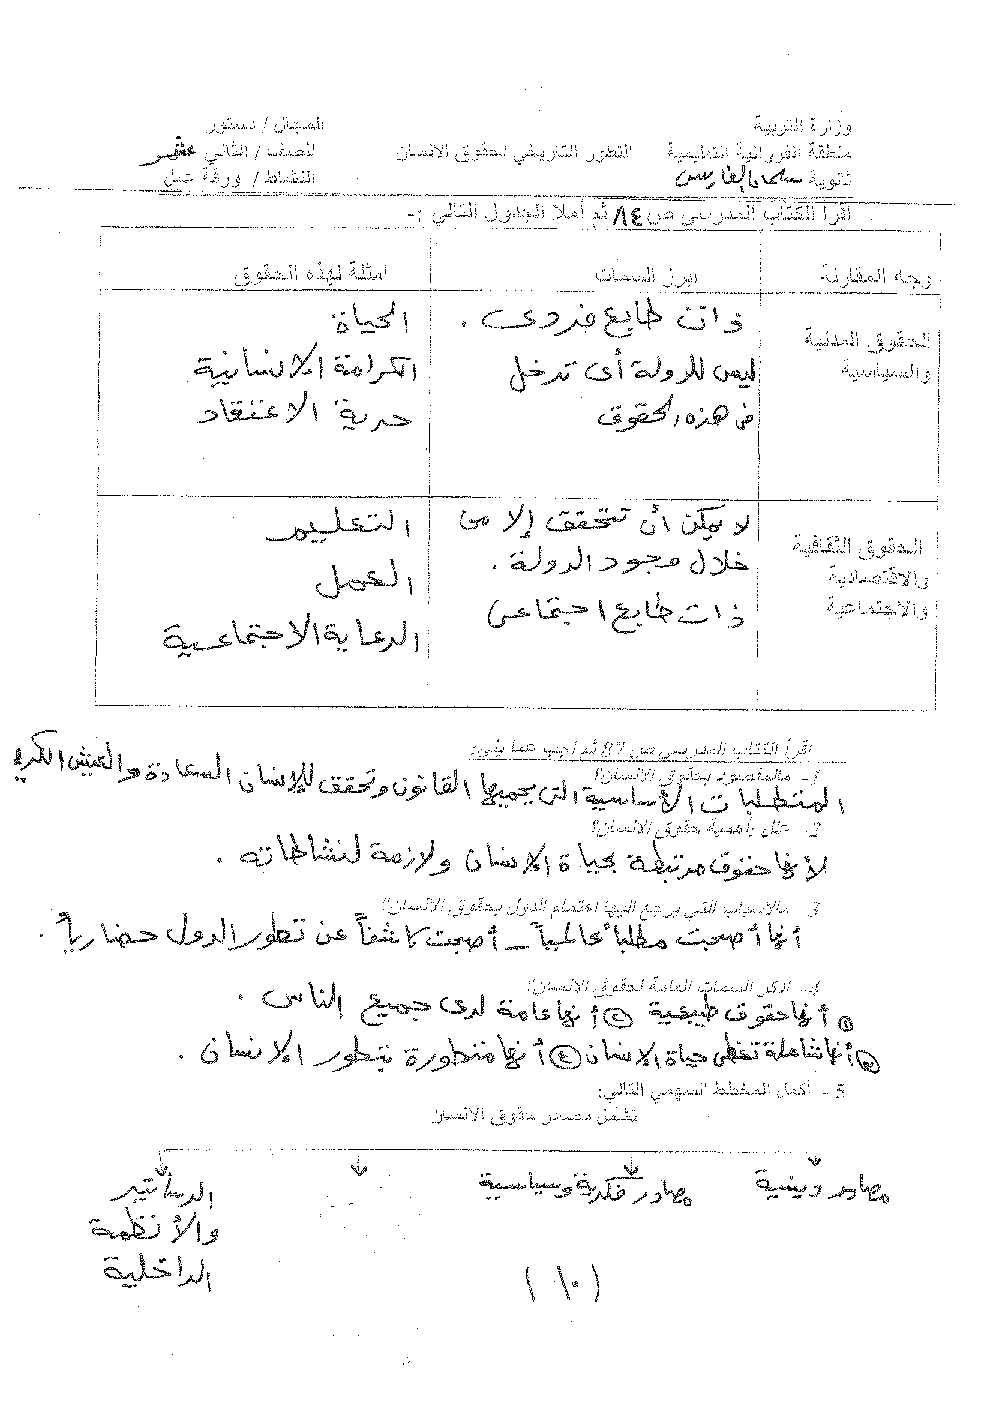 وزارة التربية
المجال / دستور
منطقة الفروانية التعليمية
التطور التاريخي لحقوق الانسان
الصف / الثاني عشر
ثانوية سلمان الفارسي
النشاط / ورقة عمل
اقرأ الكتاب المدرسي ص ٨٤ ثم أملأ الجدول التالي :-
وجه المقارنة
ابرز السمات
امثلة لهذه الحقوق
الحقوق المدنية
والسياسية
ذات طابع فردى .
ليس للدولة أى تدخل
فى هذه الحقوق
الحياة
الكرامة الانسانية
حرية الاعتقاد
الحقوق الثقافية
والاقتصادية
والاجتماعية
لا يمكن أن تتحقق إلا من
خلال وجود الدولة .
ذات طابع اجتماعى
التعليم
العمل
الرعاية الاجتماعية
اقرأ الكتاب المدرسي ص 87 ثم اجب عما يلي:
1- ماالمقصود بحقوق الانسان؟
المتطلبات الأساسية التى يحميها القانون وتحقق للإنسان السعادة والعيش الكريم
2- علل بأهمية حقوق الانسان؟
لأنها حقوق مرتبطة بحياة الإنسان ولازمة لنشاطاته .
3- ماالاسباب التي يرجع اليها اهتمام الدول بحقوق الانسان؟
أنها أصبحت مطلباً عالمياً - أصبحت كاشفاً عن تطور الدول حضارياً .
4- اذكر السمات العامة لحقوق الانسان؟
① أنها حقوق طبيعية ② أنها عامة لدى جميع الناس .
③ أنها شاملة تغطى حياة الانسان ④ أنها متطورة بتطور الانسان .
5- أكمل المخطط السهمي التالي:
تشمل مصادر حقوق الانسان
مصادر دينية
مصادر فكرية وسياسية
الدساتير
والأنظمة
الداخلية
(١٠)